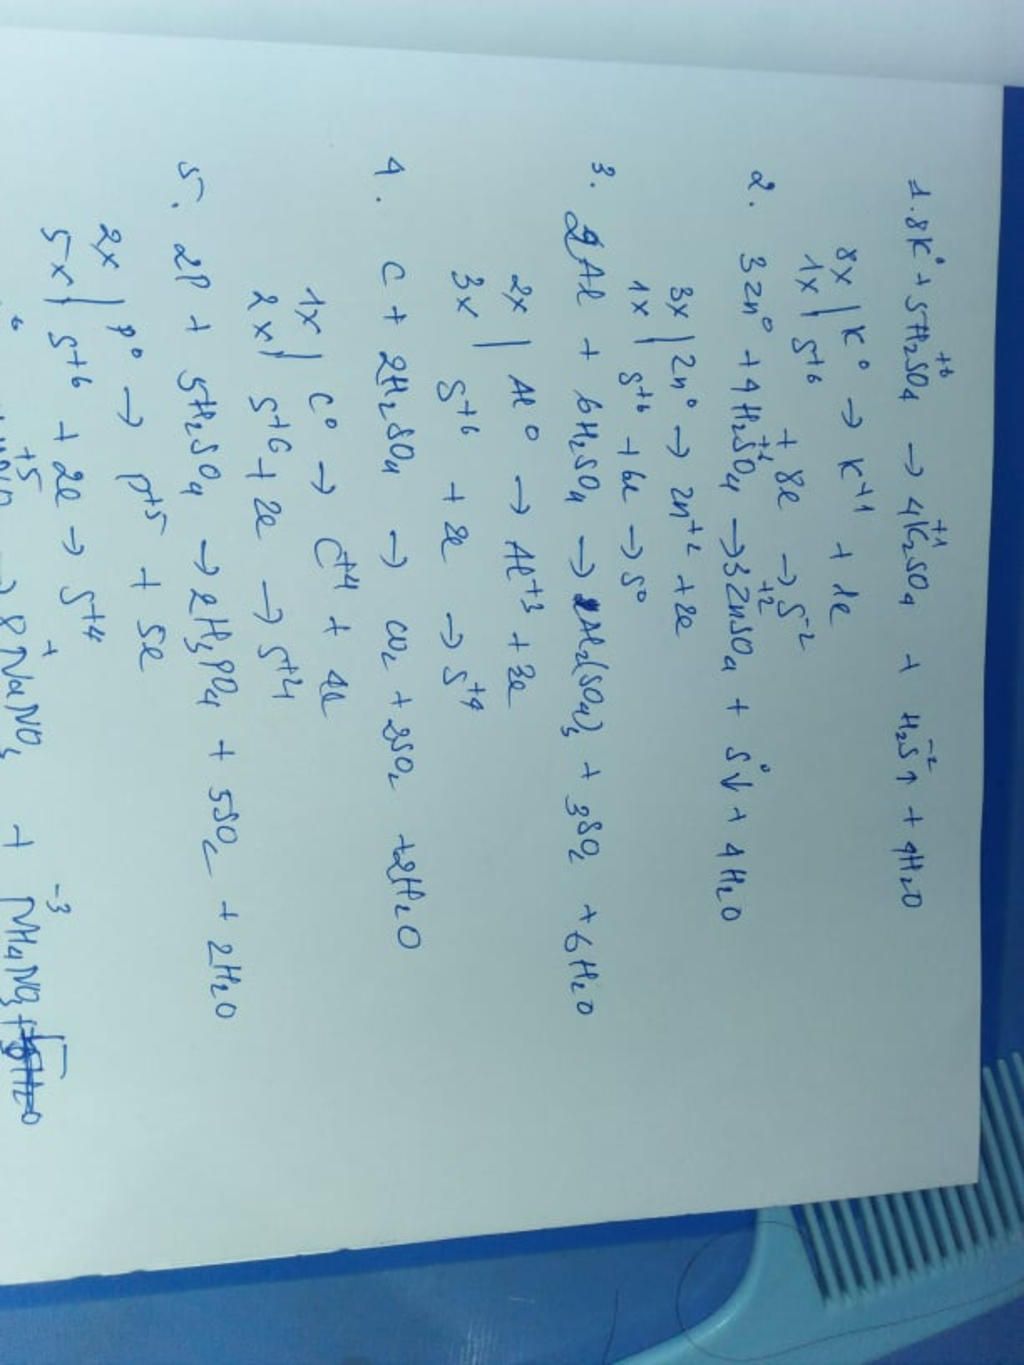 1. 8K⁰ + 5H₂S⁺⁶O₄ → 4K₂⁺¹SO₄ + H₂S⁻²↑ + 4H₂O
8x | K⁰ → K⁺¹ + 1e
1x | S⁺⁶ + 8e → S⁻²
2. 3Zn⁰ + 4H₂SO₄ → 3Zn⁺²SO₄ + S⁰↓ + 4H₂O
3x | Zn⁰ → Zn⁺² + 2e
1x | S⁺⁶ + 6e → S⁰
3. 2Al + 6H₂SO₄ → Al₂(SO₄)₃ + 3SO₂ + 6H₂O
2x | Al⁰ → Al⁺³ + 3e
3x S⁺⁶ + 2e → S⁺⁴
4. C + 2H₂SO₄ → CO₂ + 2SO₂ + 2H₂O
1x | C⁰ → C⁺⁴ + 4e
2x | S⁺⁶ + 2e → S⁺⁴
5. 2P + 5H₂SO₄ → 2H₃PO₄ + 5SO₂ + 2H₂O
2x | P⁰ → P⁺⁵ + 5e
5x | S⁺⁶ + 2e → S⁺⁴
→ 8NaNO₃ + N⁻³H₄NO₃ +